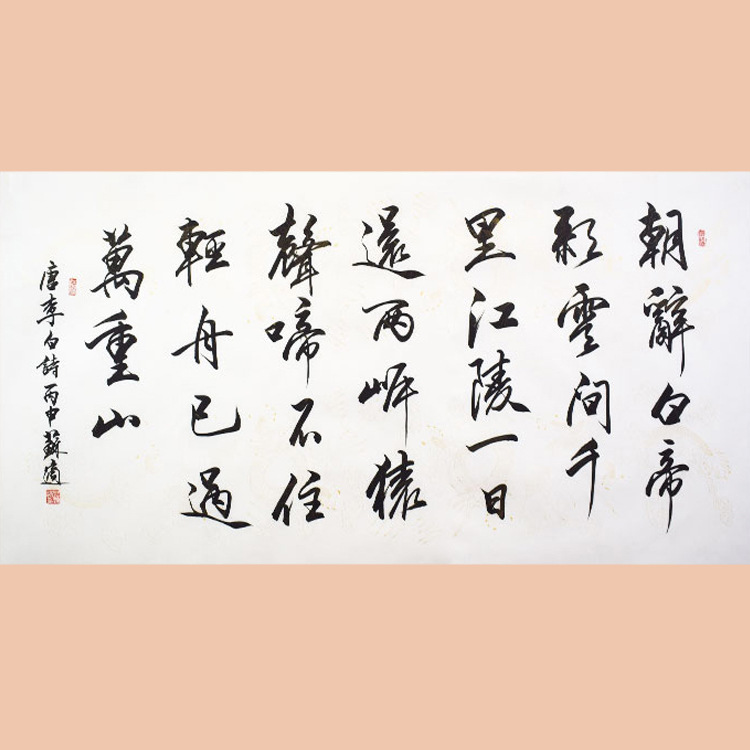 朝辭白帝
彩雲間千
里江陵一日
還兩岸猿
聲啼不住
輕舟已過
萬重山
唐李白詩丙申蘇適